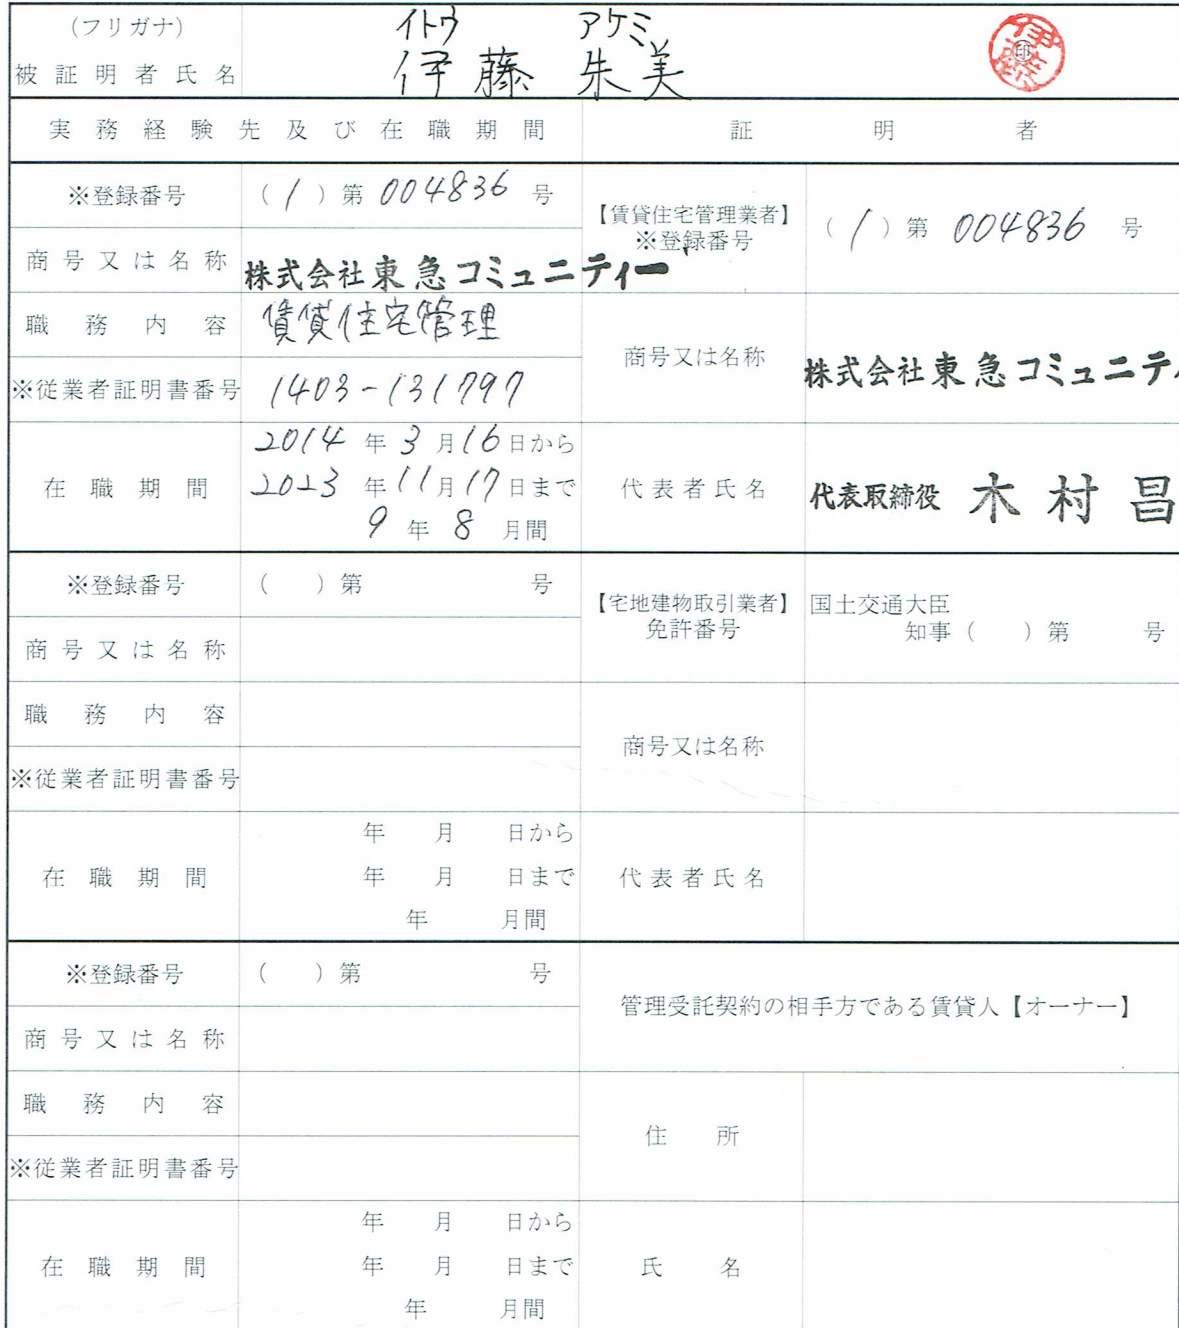 (フリガナ) イトウ アケミ
被証明者氏名 伊藤 朱美 ㊞
実務経験先及び在職期間 証明者
※登録番号 (1)第 004836 号
商号又は名称 株式会社東急コミュニティー
職務内容 賃貸住宅管理
※従業者証明書番号 1403-131797
在職期間 2014年3月16日から
2023年11月17日まで
9年8月間
【賃貸住宅管理業者】
※登録番号 (1)第 004836 号
商号又は名称 株式会社東急コミュニテ
代表者氏名 代表取締役 木村昌
※登録番号 ( )第 号
商号又は名称
職務内容
※従業者証明書番号
在職期間 年 月 日から
年 月 日まで
年 月間
【宅地建物取引業者】 国土交通大臣
免許番号 知事( )第 号
商号又は名称
代表者氏名
※登録番号 ( )第 号
商号又は名称
職務内容
※従業者証明書番号
在職期間 年 月 日から
年 月 日まで
年 月間
管理受託契約の相手方である賃貸人【オーナー】
住所
氏名